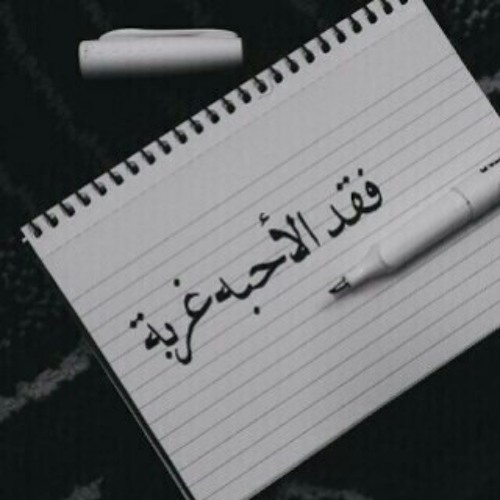 فقد الأحبه غربة